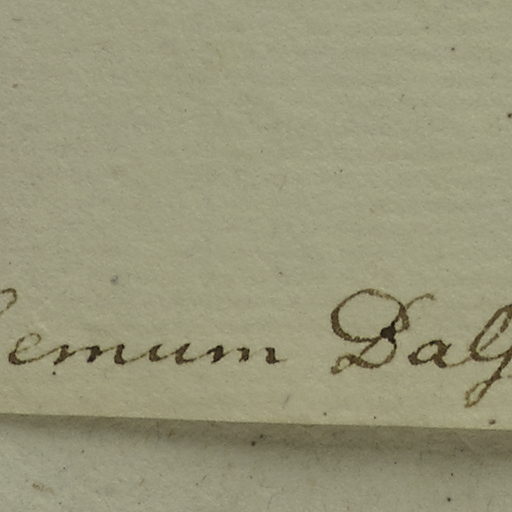 emum Dal